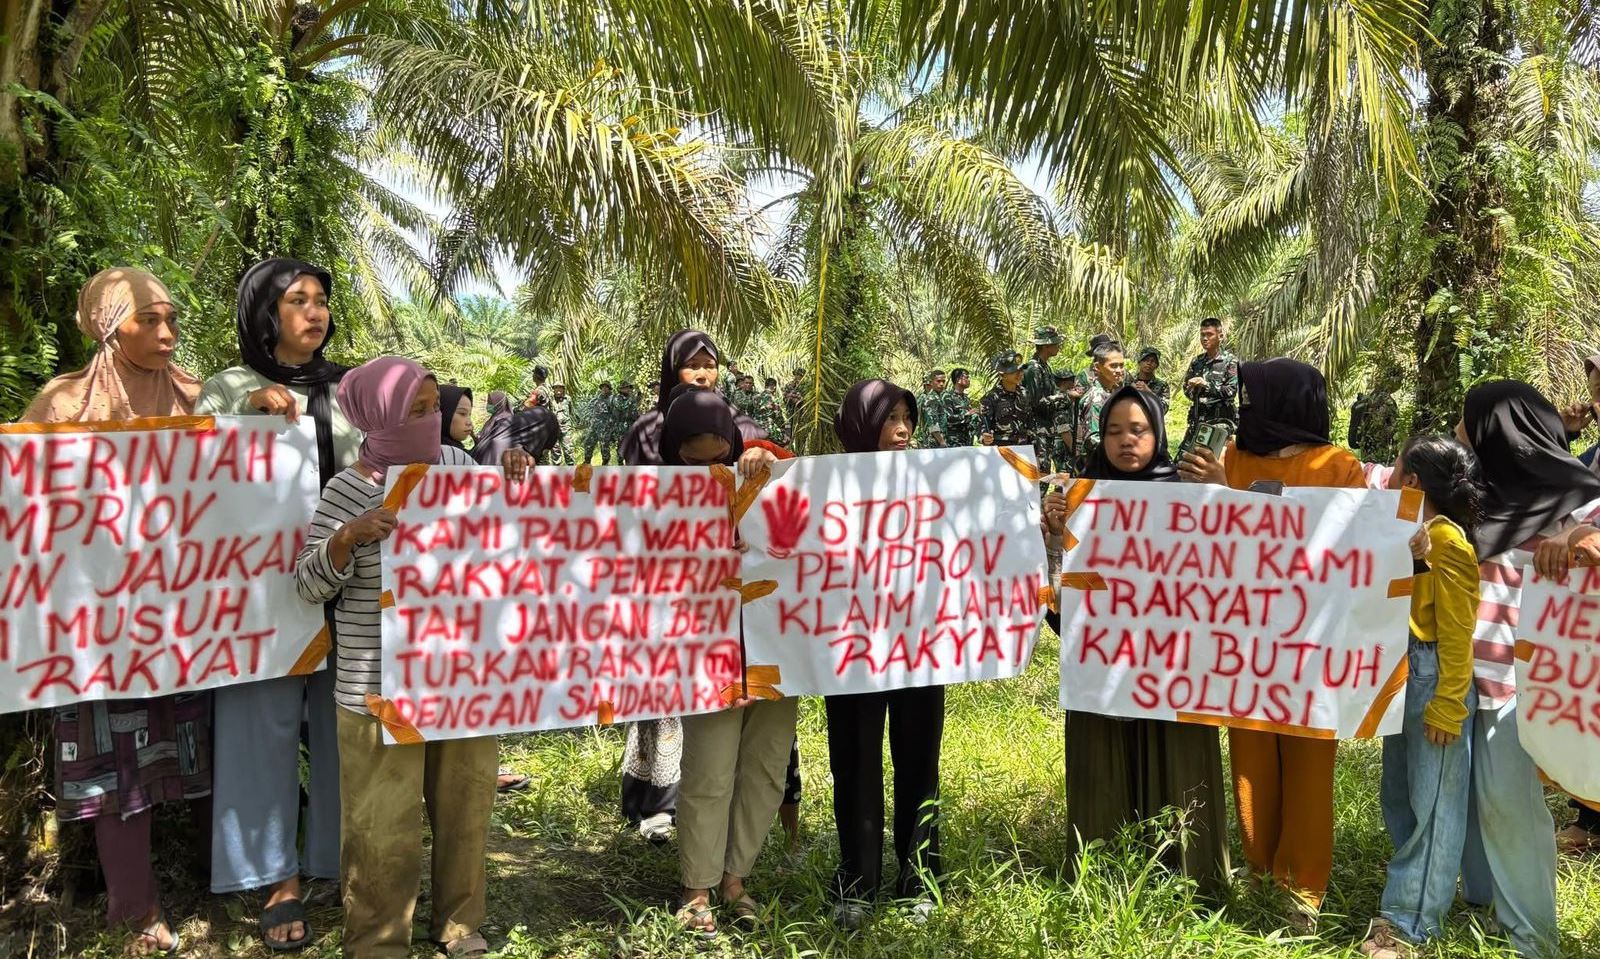 MERINTAH
MPROV
IN JADIKAN
MUSUH
RAKYAT
TUMPUAN HARAPAN
KAMI PADA WAKIL
RAKYAT. PEMERIN
TAH JANGAN BEN
TURKAN RAKYAT TNI
DENGAN SAUDARA KAMI
STOP
PEMPROV
KLAIM LAHAN
RAKYAT
TNI BUKAN
LAWAN KAMI
(RAKYAT)
KAMI BUTUH
SOLUSI
ME
BU
PAS